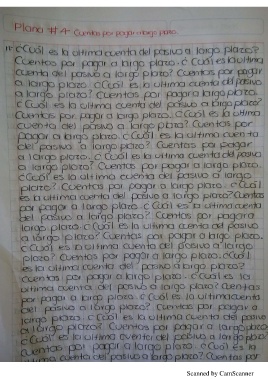 Plana #4 Cuentas por pagar a largo plazo.
1.- ¿Cuál es la ultima cuenta del pasivo a largo plazo?
Cuentas por pagar a largo plazo. ¿Cuál es la ultima
cuenta del pasivo a largo plazo? Cuentas por pagar
a largo plazo. ¿Cuál es la ultima cuenta del pasivo
a largo plazo? Cuentas por pagar a largo plazo.
¿Cuál es la ultima cuenta del pasivo a largo plazo?
Cuentas por pagar a largo plazo. ¿Cuál es la ultima
cuenta del pasivo a largo plazo? Cuentas por
pagar a largo plazo. ¿Cuál es la ultima cuenta
del pasivo a largo plazo? Cuentas por pagar
a largo plazo. ¿Cuál es la ultima cuenta del pasivo
a largo plazo? Cuentas por pagar a largo plazo.
¿Cuál es la ultima cuenta del pasivo a largo
plazo? Cuentas por pagar a largo plazo. ¿Cuál
es la ultima cuenta del pasivo a largo plazo? Cuentas
por pagar a largo plazo. ¿Cuál es la ultima cuenta
del pasivo a largo plazo? Cuentas por pagar a
largo plazo. ¿Cuál es la ultima cuenta del pasivo
a largo plazo? Cuentas por pagar a largo plazo.
¿Cuál es la ultima cuenta del pasivo a largo
plazo? Cuentas por pagar a largo plazo. ¿Cuál
es la ultima cuenta del pasivo a largo plazo?
Cuentas por pagar a largo plazo. ¿Cuál es la
ultima cuenta del pasivo a largo plazo? Cuentas
por pagar a largo plazo. ¿Cuál es la ultima cuenta
del pasivo a largo plazo? Cuentas por pagar a
largo plazo. ¿Cuál es la ultima cuenta del pasivo
a largo plazo? Cuentas por pagar a largo plazo.
¿Cuál es la ultima cuenta del pasivo a largo plazo
cuentas por pagar a largo plazo. ¿Cuál es la
ultima cuenta del pasivo a largo plazo? Cuentas por
Scanned by CamScanner